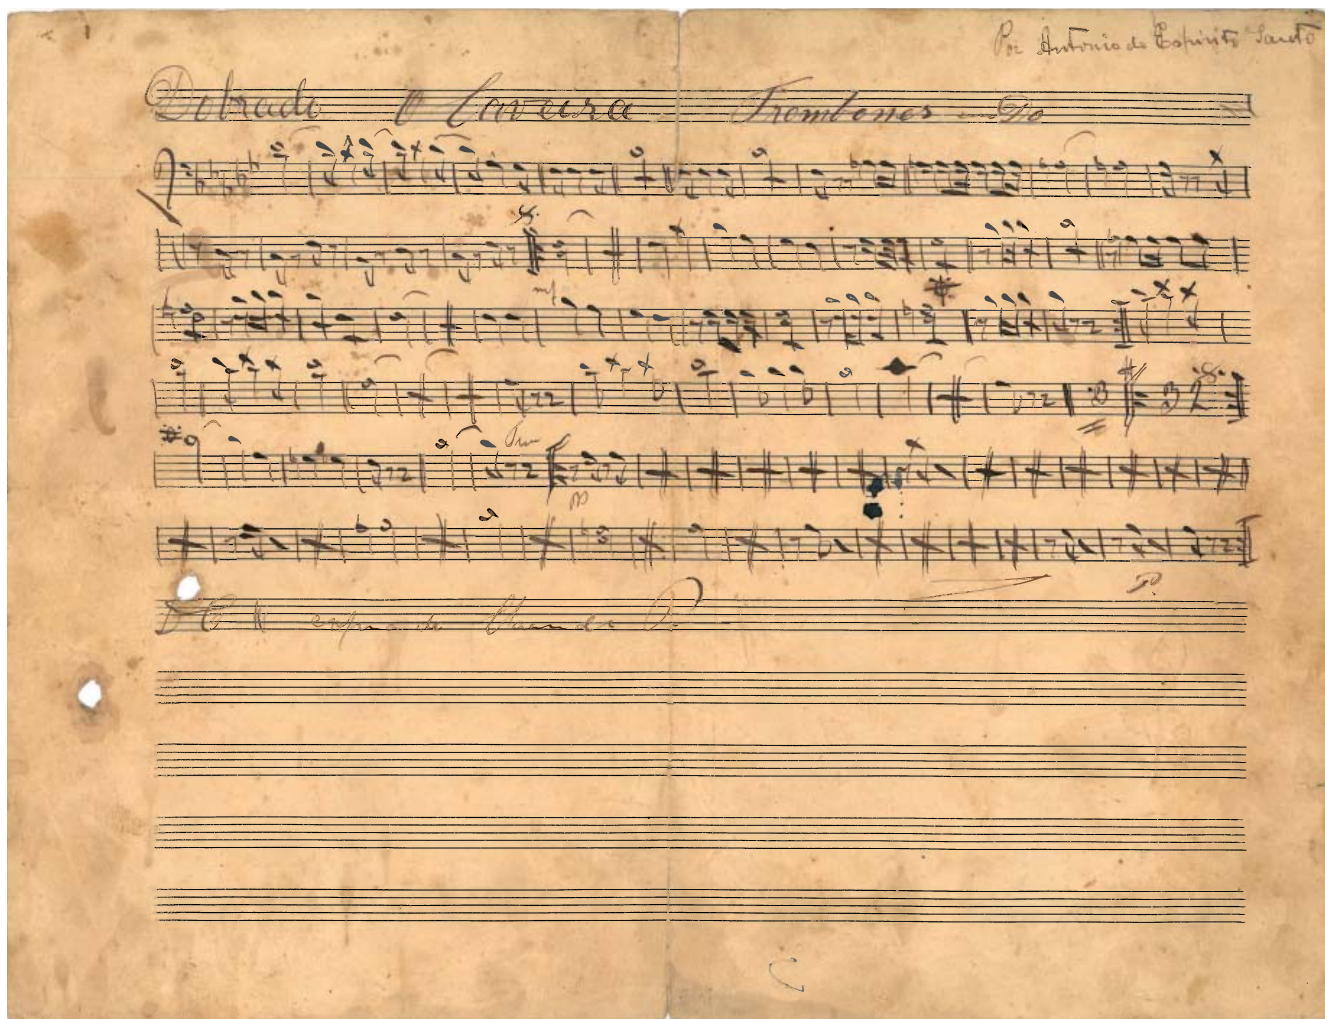 Por Antonio do Espirito Santo
Dobrado O Caveira Trombones Do
mf
Trio
pp
3 2
D C